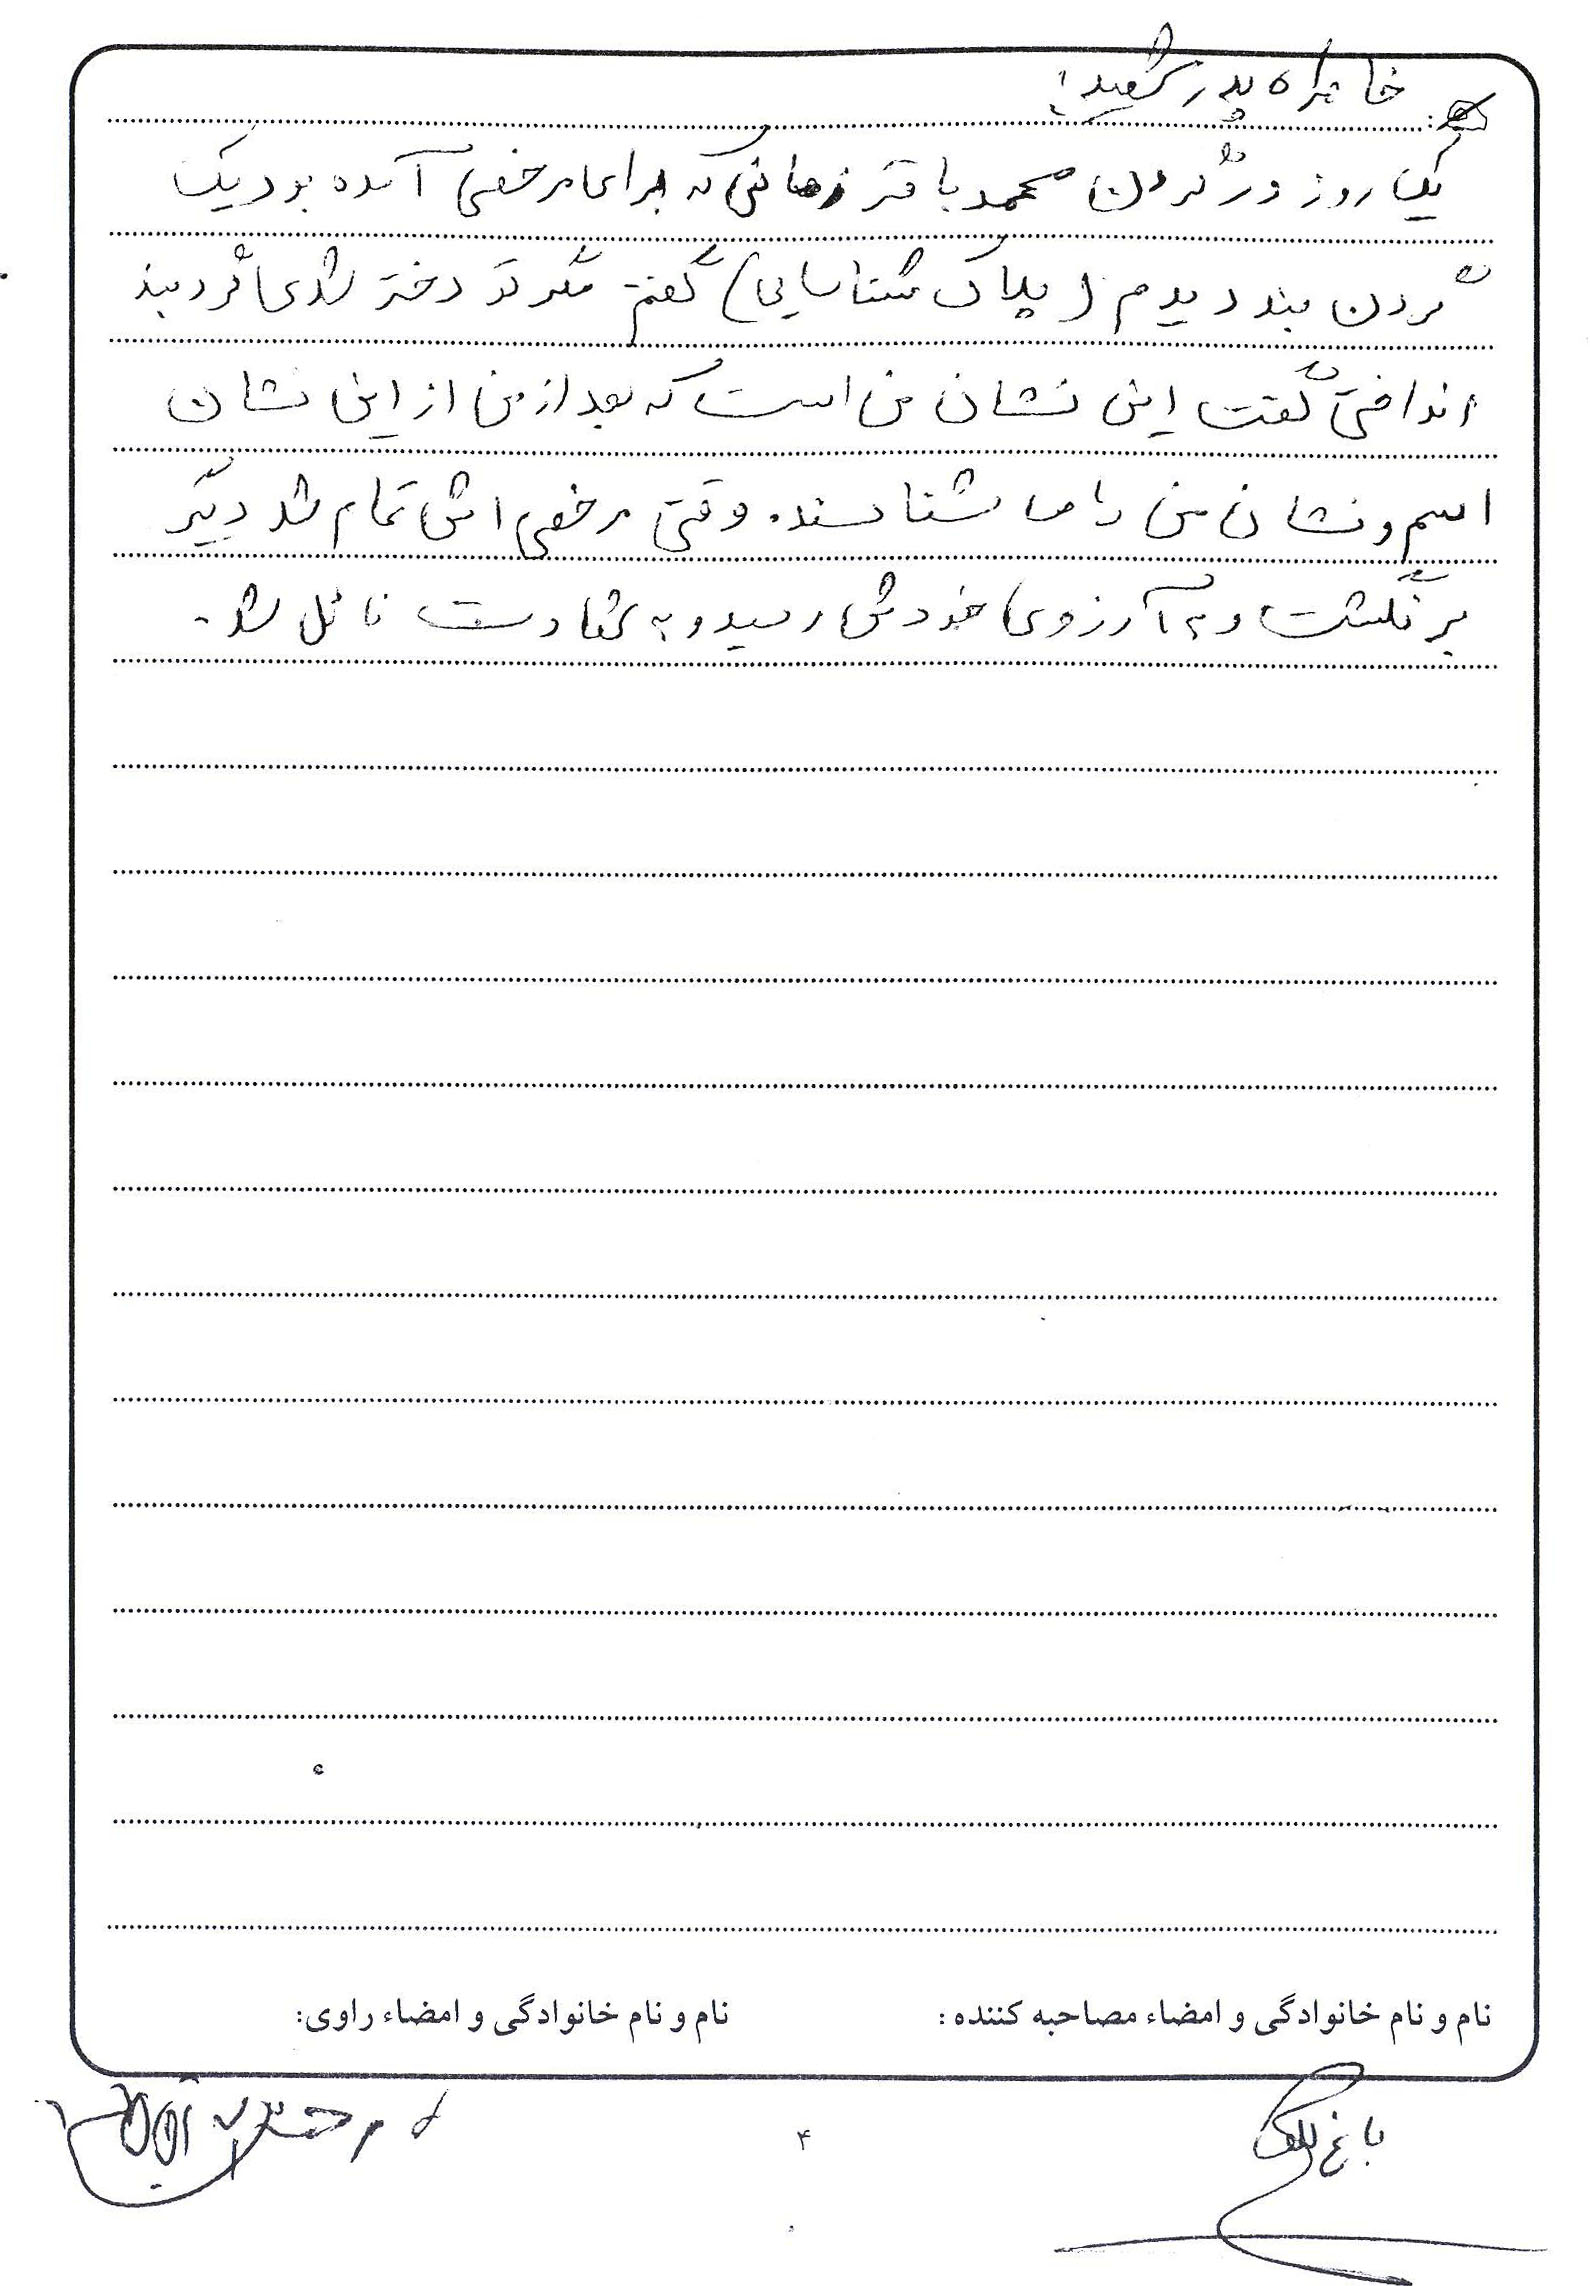 خاطره پدر شهید:
یک روز در گردن محمد باقر زمانی که برای مرخصی آمده بود یک
گردن بند دیدم (پلاک شناسایی) گفتم مگر تو دختر شدی گردنبند
انداختی گفت این نشان من است که بعد از من از این نشان
اسم و نشان من را می شناسند. وقتی مرخصی اش تمام شد دیگر
برنگشت و به آرزوی خودش رسید و به شهادت نائل شد.
نام و نام خانوادگی و امضاء مصاحبه کننده: نام و نام خانوادگی و امضاء راوی:
۴